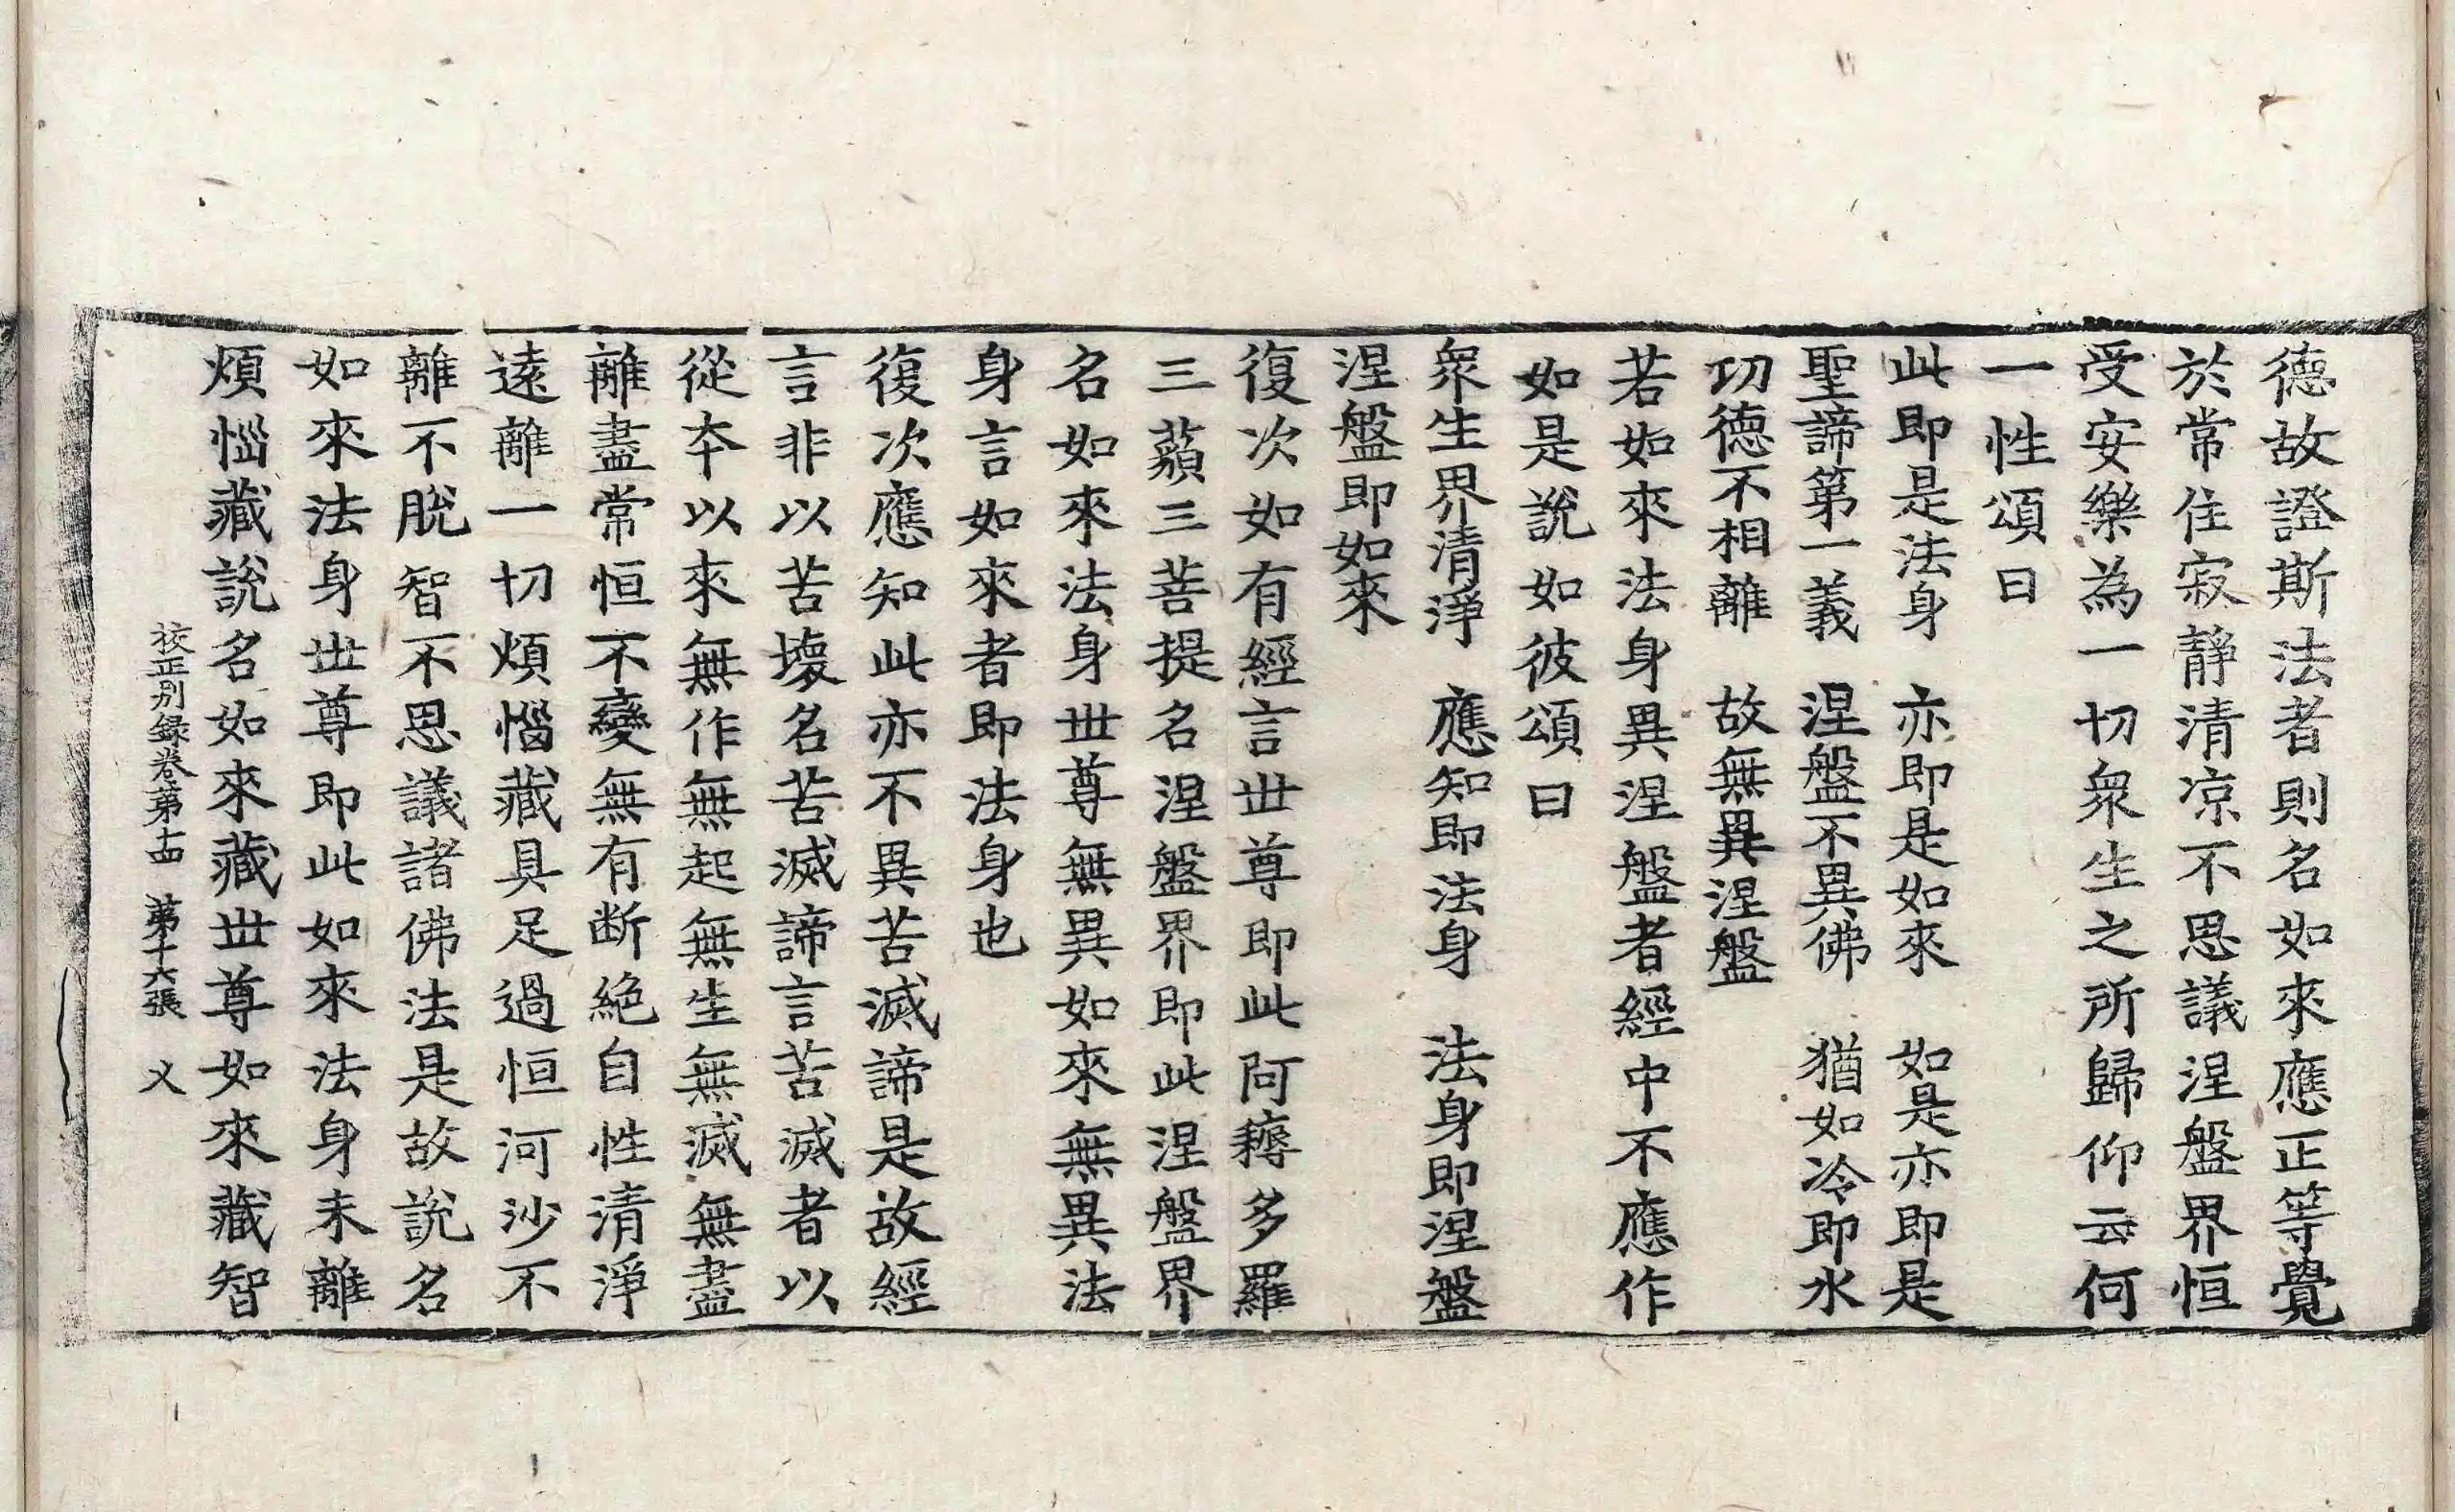 德故證斯法者則名如來應正等覺
於常住寂靜清凉不思議涅盤界恒
受安樂為一切衆生之所歸仰云何
一性頌曰
此即是法身　亦即是如來　如是亦即是
聖諦第一義　涅盤不異佛　猶如冷即水
功德不相離　故無異涅盤
若如來法身異涅盤者經中不應作
如是說如彼頌曰
衆生界清淨　應知即法身　法身即涅盤
涅盤即如來
復次如有經言世尊即此阿耨多羅
三藐三菩提名涅盤界即此涅盤界
名如來法身世尊無異如來無異法
身言如來者即法身也
復次應知此亦不異苦滅諦是故經
言非以苦壞名苦滅諦言苦滅者以
從本以來無作無起無生無滅無盡
離盡常恒不變無有断絶自性清淨
遠離一切煩惱藏具足過恒河沙不
離不脫智不思議諸佛法是故說名
如來法身世尊即此如來法身未離
煩惱藏說名如來藏世尊如來藏智
校正別録卷第十四　第十六張　义